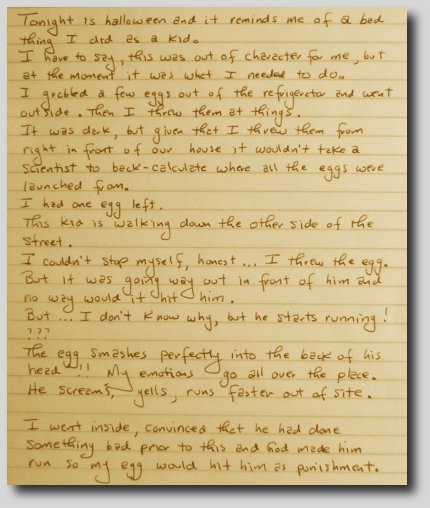 Tonight is halloween and it reminds me of a bad
thing I did as a kid.
I have to say, this was out of character for me, but
at the moment it was what I needed to do.
I grabbed a few eggs out of the refrigerator and went
outside. Then I threw them at things.
It was dark, but given that I threw them from
right in front of our house it wouldn't take a
Scientist to back-calculate where all the eggs were
launched from.
I had one egg left.
This kid is walking down the other side of the
street.
I couldn't stop myself, honest... I threw the egg.
But it was going way out in front of him and
no way would it hit him.
But... I don't know why, but he starts running!
???
The egg smashes perfectly into the back of his
head!! My emotions go all over the place.
He screams, yells, runs faster out of site.
I went inside, convinced that he had done
something bad prior to this and God made him
run so my egg would hit him as punishment.